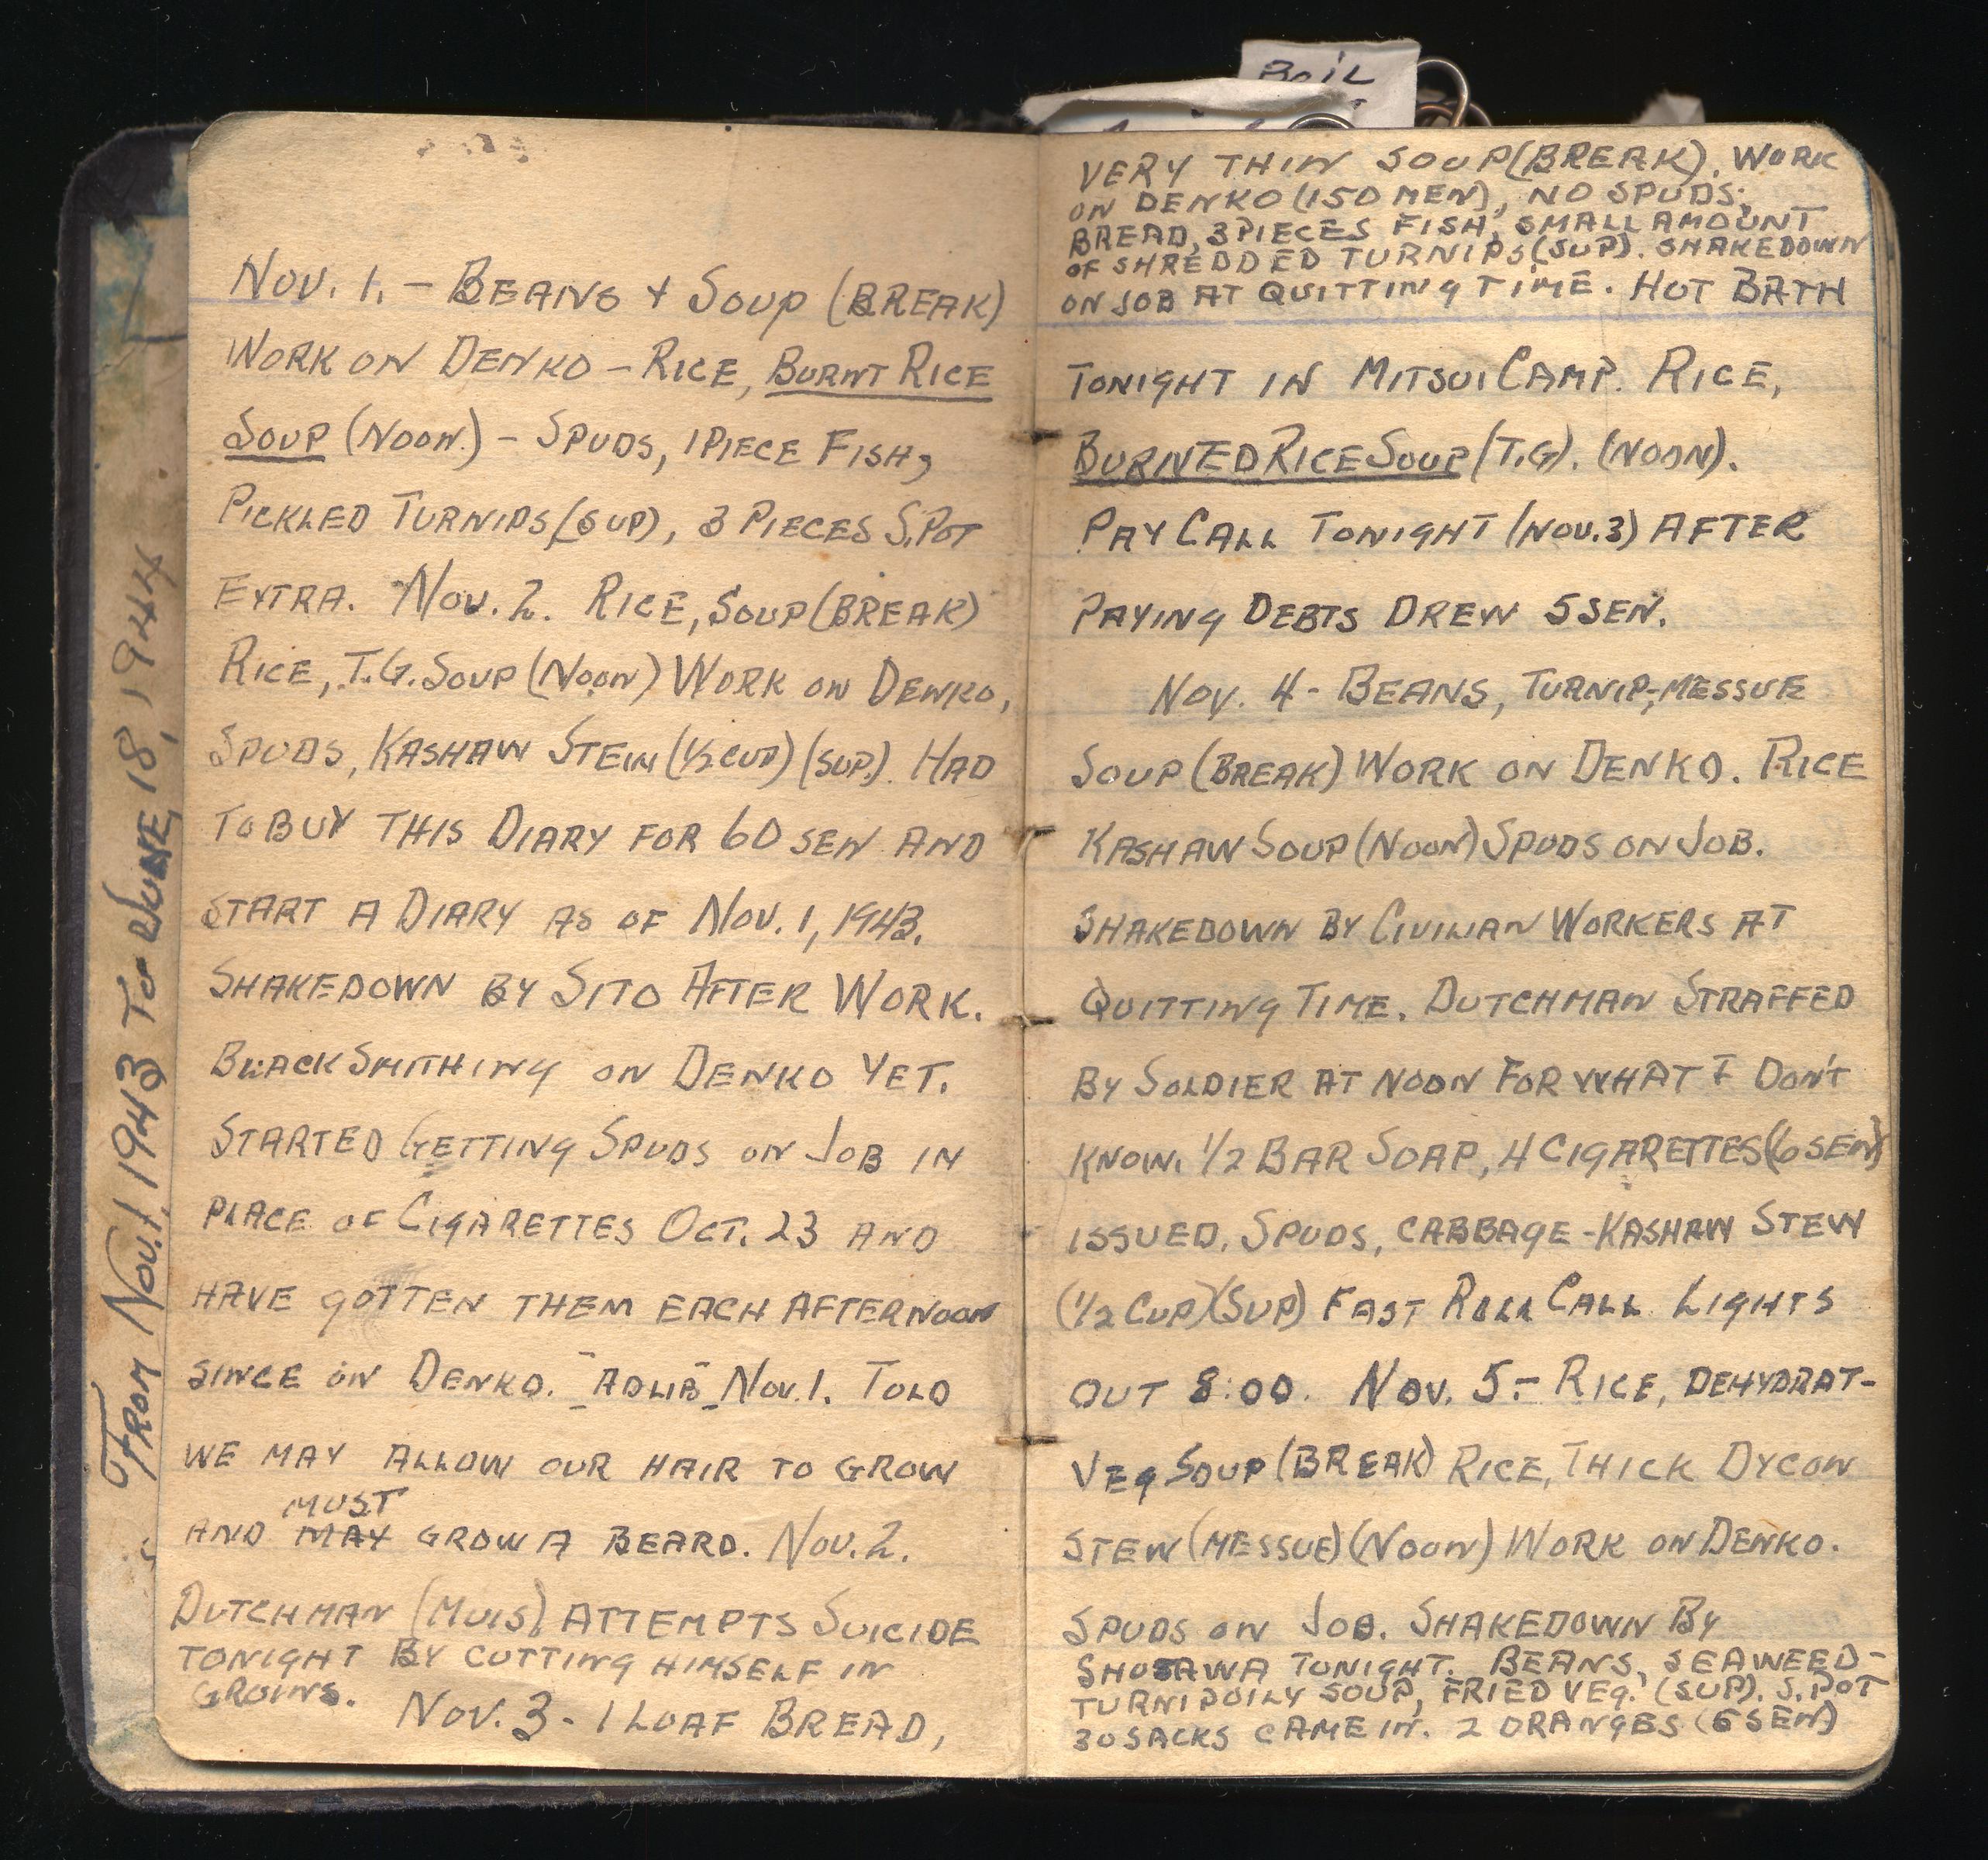 BOIL
FROM NOV. 1, 1943 TO JUNE 18, 1944
NOV. 1. - BEANS + SOUP (BREAK)
WORK ON DENKO - RICE, BURNT RICE
SOUP (NOON.) - SPUDS, 1 PIECE FISH,
PICKLED TURNIPS (SUP), 3 PIECES S. POT
EXTRA. NOV. 2. RICE, SOUP (BREAK)
RICE, T.G. SOUP (NOON) WORK ON DENKO,
SPUDS, KASHAW STEW (1/2 CUP) (SUP.). HAD
TO BUY THIS DIARY FOR 60 SEN AND
START A DIARY AS OF NOV. 1, 1943.
SHAKEDOWN BY SITO AFTER WORK.
BLACKSMITHING ON DENKO YET.
STARTED GETTING SPUDS ON JOB IN
PLACE OF CIGARETTES OCT. 23 AND
HAVE GOTTEN THEM EACH AFTERNOON
SINCE ON DENKO. "ADLIB" NOV. 1. TOLD
WE MAY ALLOW OUR HAIR TO GROW
MUST
AND MAY GROW A BEARD. NOV. 2.
DUTCHMAN (MUIS) ATTEMPTS SUICIDE
TONIGHT BY CUTTING HIMSELF IN
GROINS.
NOV. 3 - 1 LOAF BREAD,
VERY THIN SOUP (BREAK). WORK
ON DENKO (150 MEN), NO SPUDS;
BREAD, 3 PIECES FISH, SMALL AMOUNT
OF SHREDDED TURNIPS (SUP). SHAKEDOWN
ON JOB AT QUITTING TIME. HOT BATH
TONIGHT IN MITSUI CAMP. RICE,
BURNED RICE SOUP (T.G). (NOON).
PAY CALL TONIGHT (NOV. 3) AFTER
PAYING DEBTS DREW 5 SEN.
NOV. 4 - BEANS, TURNIP-MESSUE
SOUP (BREAK) WORK ON DENKO. RICE
KASHAW SOUP (NOON) SPUDS ON JOB.
SHAKEDOWN BY CIVILIAN WORKERS AT
QUITTING TIME. DUTCHMAN STRAFFED
BY SOLDIER AT NOON FOR WHAT I DON'T
KNOW. 1/2 BAR SOAP, 4 CIGARETTES (6 SEN)
ISSUED. SPUDS, CABBAGE-KASHAW STEW
(1/2 CUP) (SUP) FAST ROLL CALL LIGHTS
OUT 8:00. NOV. 5.- RICE, DEHYDRAT-
VEG SOUP (BREAK) RICE, THICK DYCON
STEW (MESSUE) (NOON) WORK ON DENKO.
SPUDS ON JOB. SHAKEDOWN BY
TONIGHT. BEANS, SEAWEED-
TURNIP OILY SOUP, FRIED VEG. (SUP). S. POT
30 SACKS CAME IN. 2 ORANGES (6 SEN)